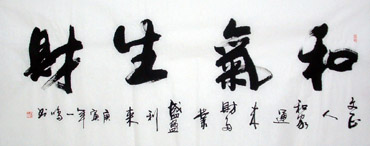 和氣生財
文正人和家運來財多業盛益利來庚寅年一鳴書